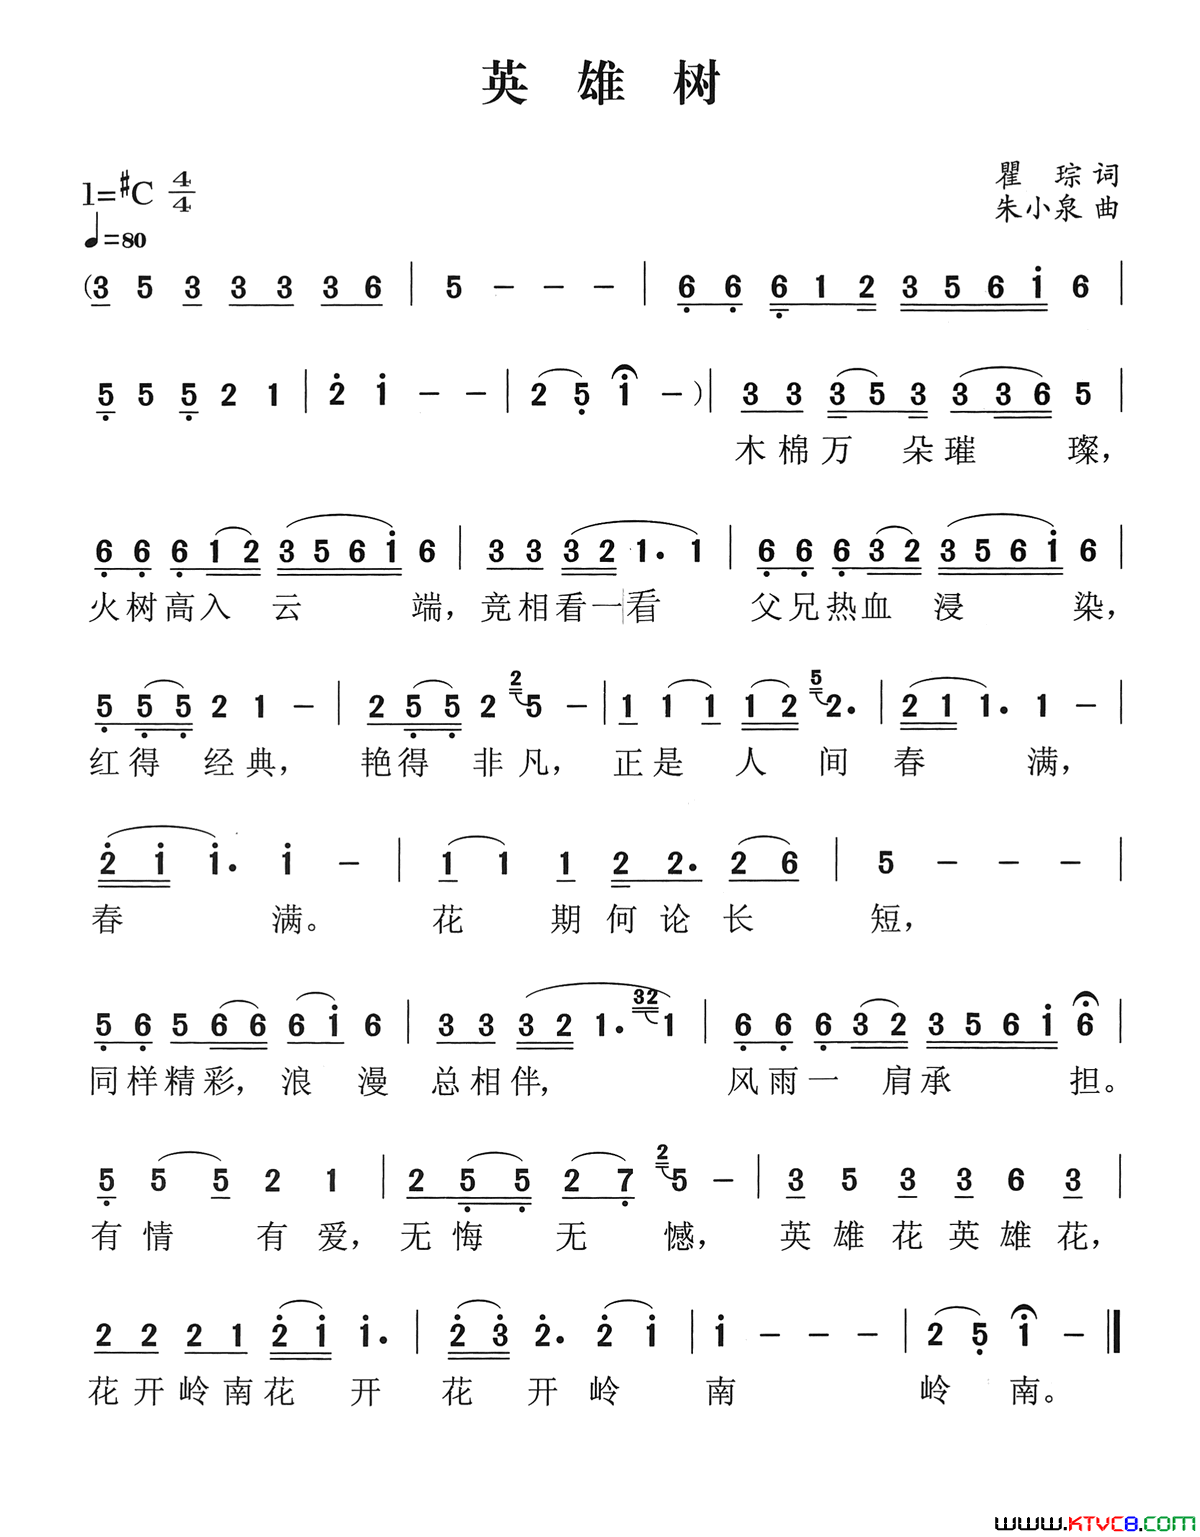 英雄树
1=#C 4/4
瞿 琮 词
♩=80
朱小泉 曲
(3 5 3 3 3 3 6 | 5 - - - | 6 6 6 1 2 3 5 6 i 6 |
5 5 5 2 1 | 2 i - - | 2 5 i - ) | 3 3 3 5 3 3 3 6 5 |
木棉万 朵璀 璨,
6 6 6 1 2 3 5 6 i 6 | 3 3 3 2 1. 1 | 6 6 6 3 2 3 5 6 i 6 |
火树高入 云 端, 竞相看一看 父兄热血 浸 染,
5 5 5 2 1 - | 2 5 5 2 2 5 - | 1 1 1 1 2 5 2. | 2 1 1. 1 - |
红得 经典, 艳得 非凡, 正是 人 间 春 满,
2 i i. i - | 1 1 1 2 2. 2 6 | 5 - - - |
春 满。 花 期何论长 短,
5 6 5 6 6 6 i 6 | 3 3 3 2 1. 32 1 | 6 6 6 3 2 3 5 6 i 6 |
同样精彩, 浪 漫 总相伴, 风雨一 肩承 担。
5 5 5 2 1 | 2 5 5 2 7 2 5 - | 3 5 3 3 6 3 |
有情 有爱, 无悔 无 憾, 英雄花英雄花,
2 2 2 1 2 i i. | 2 3 2. 2 i | i - - - | 2 5 i - ‖
花开岭南花 开 花 开岭 南 岭 南。
www.KTVC8.com